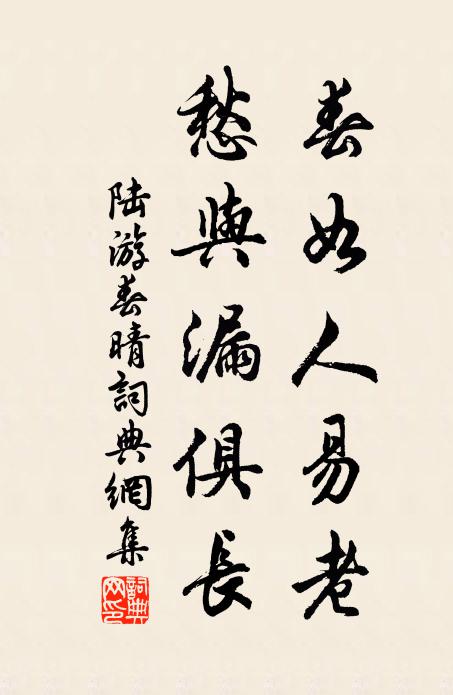 春如人易老
愁與漏俱長
陸游春晴詞典網集
詞典網印